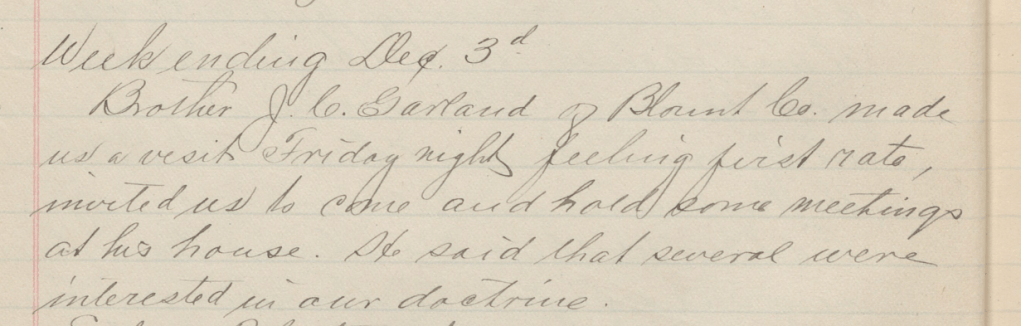 Week ending Dec. 3d
Brother J. C. Garland of Blount Co. made
us a visit Friday night feeling first rate,
invited us to come and hold some meetings
at his house. He said that several were
interested in our doctrine.